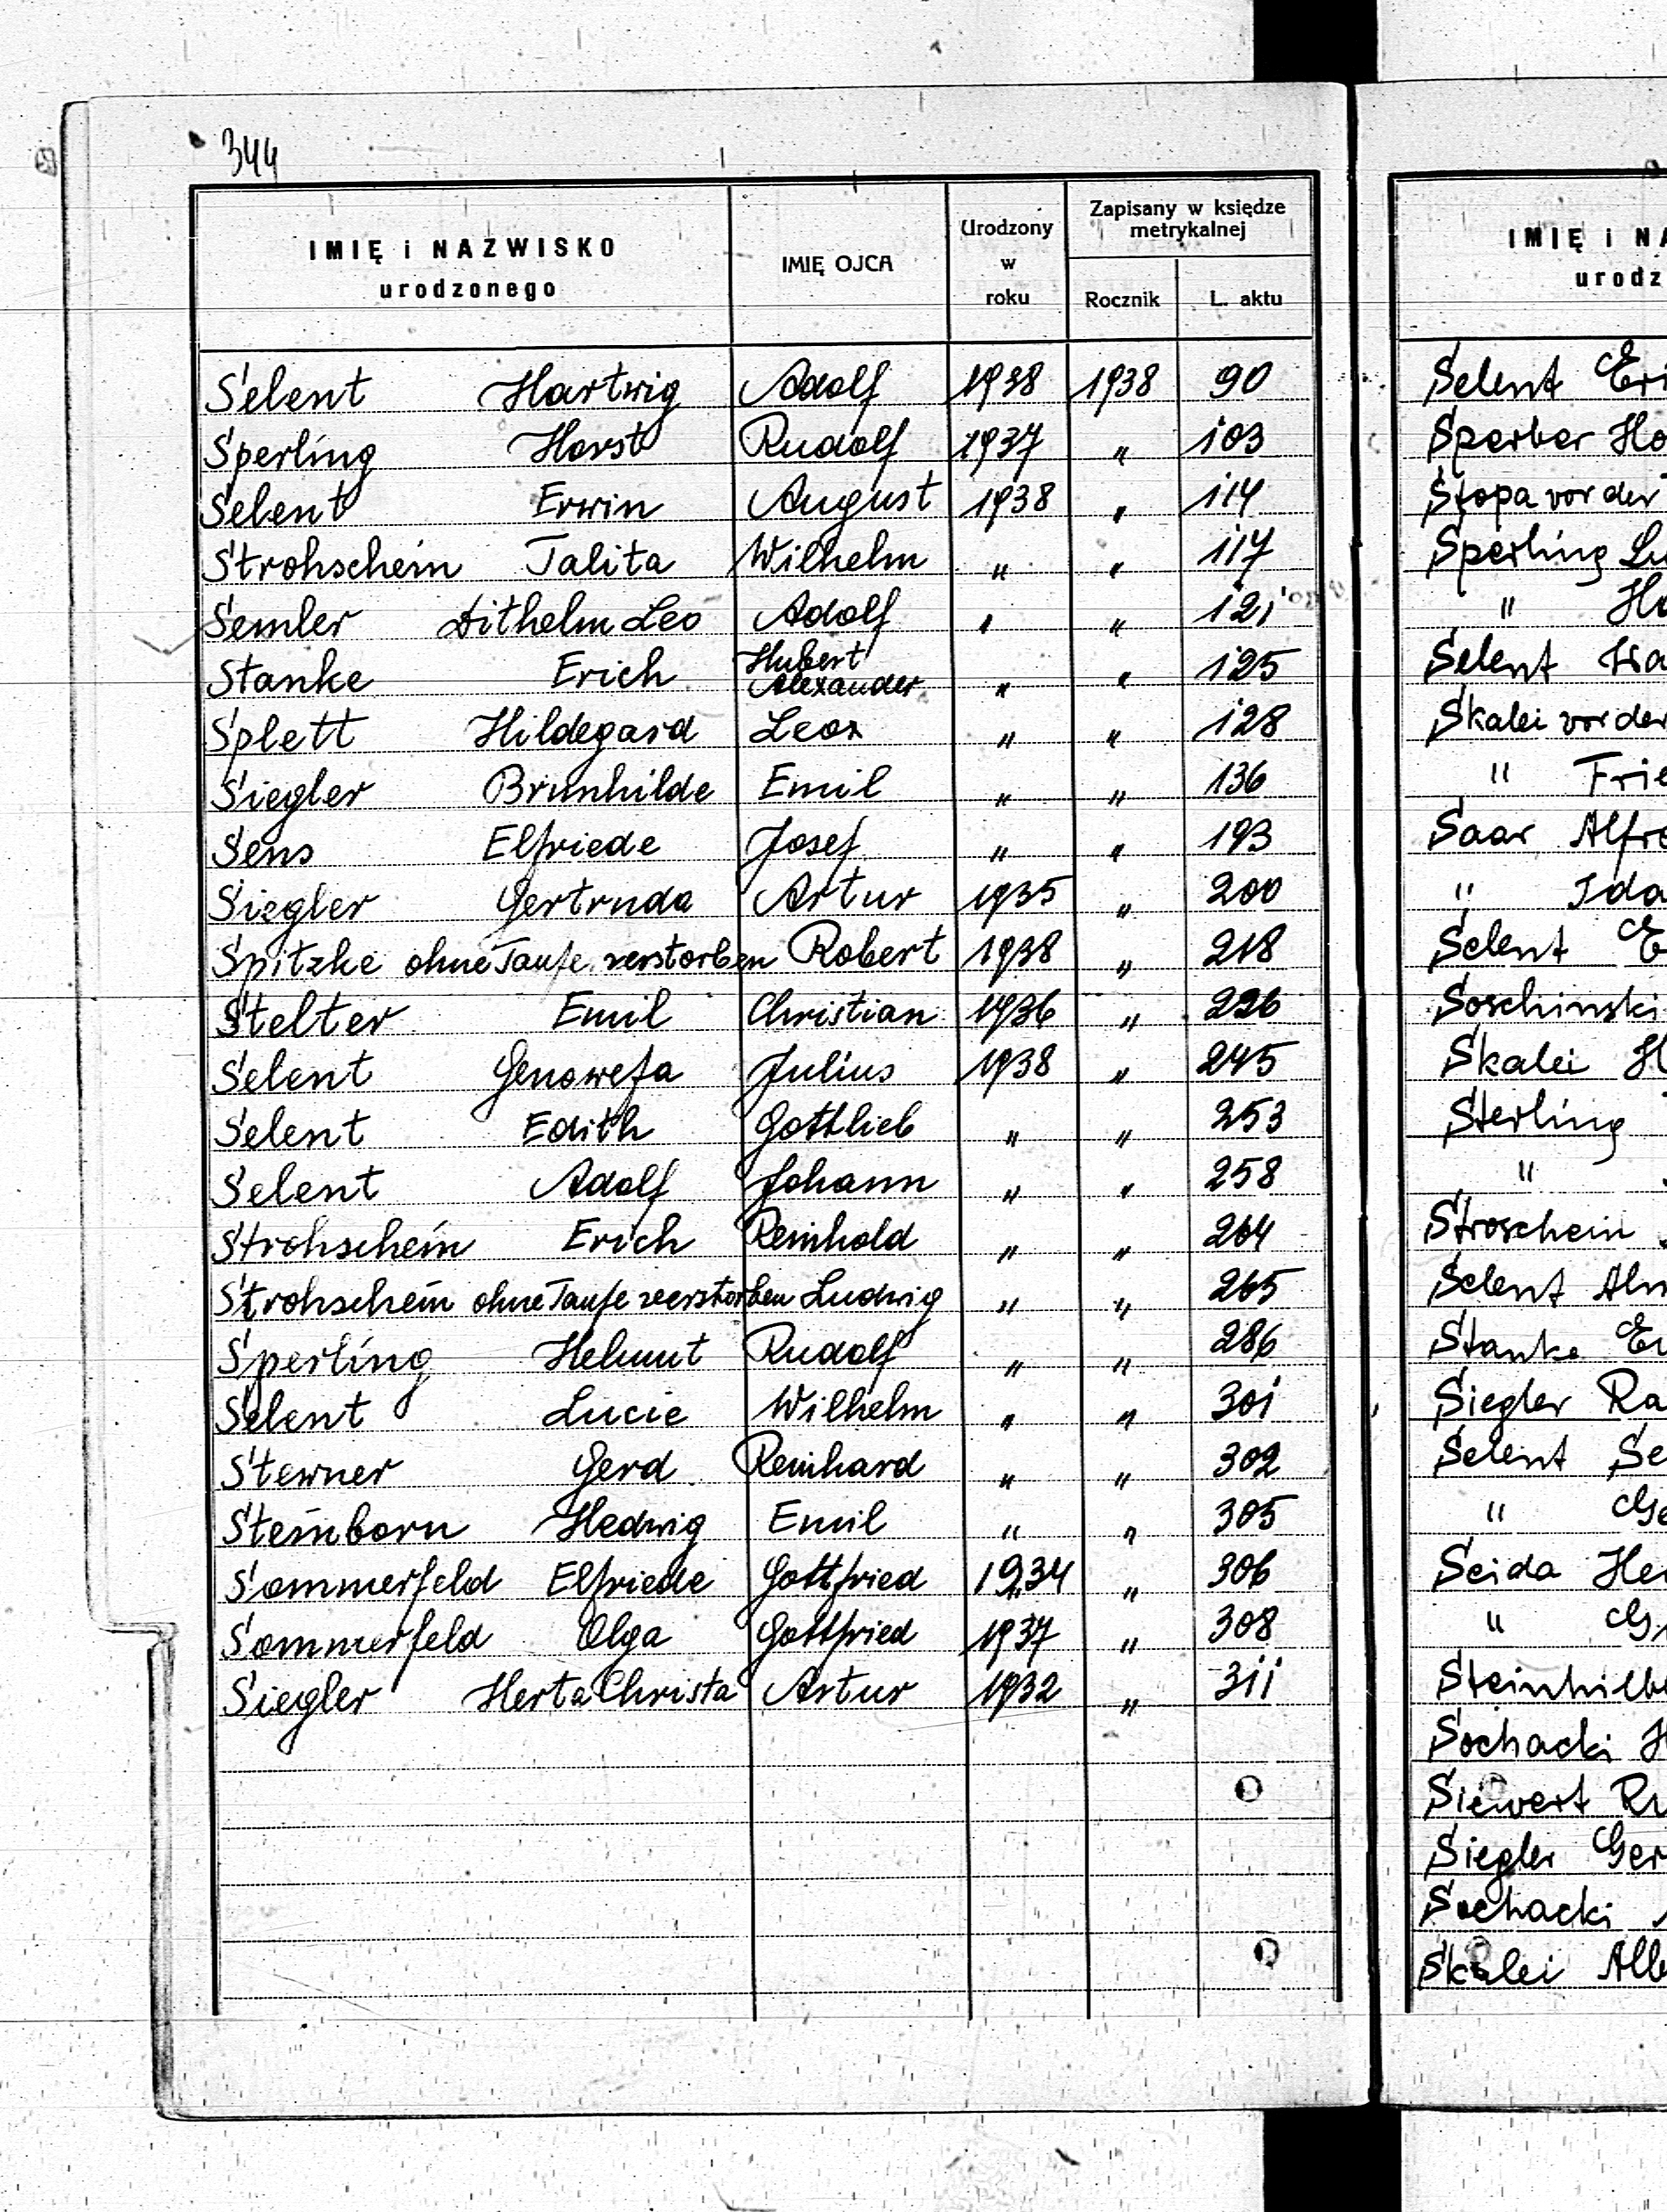 344
IMIĘ i NAZWISKO urodzonego IMIĘ OJCA Urodzony w roku Zapisany w księdze metrykalnej Rocznik L. aktu
Selent Hartwig Adolf 1938 1938 90
Sperling Horst Rudolf 1937 " 103
Selent Erwin August 1938 " 114
Strohschein Talita Wilhelm " " 117
Semler Dithelm Leo Adolf " " 121
Stanke Erich Hubert Alexander " " 125
Splett Hildegard Leon " " 128
Siegler Brunhilde Emil " " 136
Sens Elfriede Josef " " 193
Siegler Gertruda Artur 1935 " 200
Spitzke ohne Taufe verstorben Robert 1938 " 218
Stelter Emil Christian 1936 " 226
Selent Genowefa Julius 1938 " 245
Selent Edith Gottlieb " " 253
Selent Adolf Johann " " 258
Strohschein Erich Reinhold " " 264
Strohschein ohne Taufe verstorben Ludwig " " 265
Sperling Helmut Rudolf " " 286
Selent Lucie Wilhelm " " 301
Stewner Gerd Reinhard " " 302
Steinborn Hedwig Emil " " 305
Sommerfeld Elfriede Gottfried 1934 " 306
Sommerfeld Olga Gottfried 1937 " 308
Siegler Herta Christa Artur 1932 " 311
IMIĘ i NA
urodz
Selent Eri
Sperber Ho
Stopa vor der
Sperling Lu
" Ho
Selent
Skalei vor der
" Frie
Saar Alfre
" Ida
Selent E
Soschinski
Skalei H
Sterling
"
Stroschein
Selent
Stanke
Siegler Ra
Selent Se
" Ge
Seida He
" G
Steinhilbe
Sochacki H
Siewert Ru
Siegler Ger
Sochacki
Skalei Alb